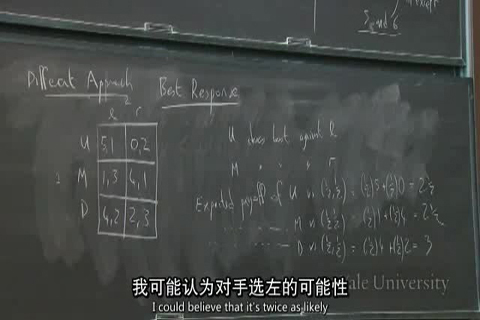 5 and 6
Different Approach Best Response
l r
U 5,1 0,2
M 1,3 4,1
D 4,2 2,3
U does best against l
M " " " r
Expected payoff of U vs (½,½) = (½)5 + (½)0 = 2½
" " " M vs (½,½) = (½)1 + (½)4 = 2½
" " " D vs (½,½) = (½)4 + (½)2 = 3
Yale University
我可能认为对手选左的可能性
I could believe that it's twice as likely